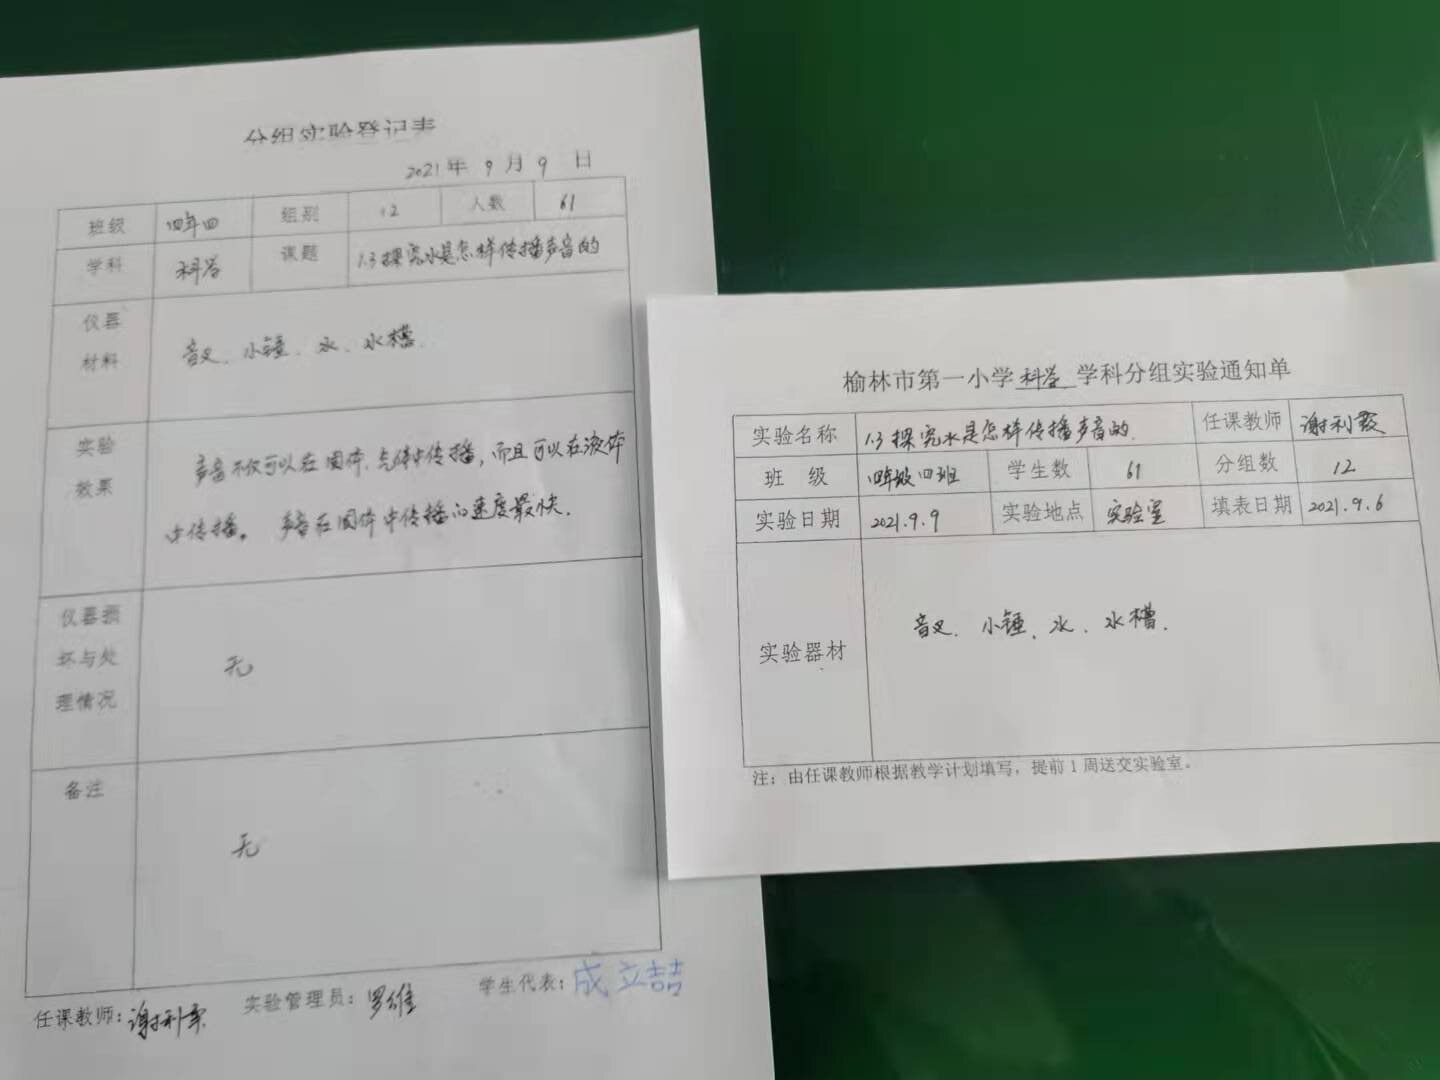 分组实验登记表
2021年 9月 9日
班级 四年四 组别 12 人数 61
学科 科学 课题 1.3探究水是怎样传播声音的
仪器
材料
音叉、小锤、水、水槽.
实验
效果
声音不仅可以在固体、气体中传播，而且可以在液体
中传播。声音在固体中传播的速度最快.
仪器损
坏与处
理情况
无
备注
无
任课教师: 谢利 实验管理员: 罗维 学生代表: 成立喆
榆林市第一小学 科学 学科分组实验通知单
实验名称 1.3探究水是怎样传播声音的. 任课教师 谢利霞
班 级 四年级四班 学生数 61 分组数 12
实验日期 2021.9.9 实验地点 实验室 填表日期 2021.9.6
实验器材 音叉、小锤、水、水槽.
注：由任课教师根据教学计划填写，提前1周送交实验室。